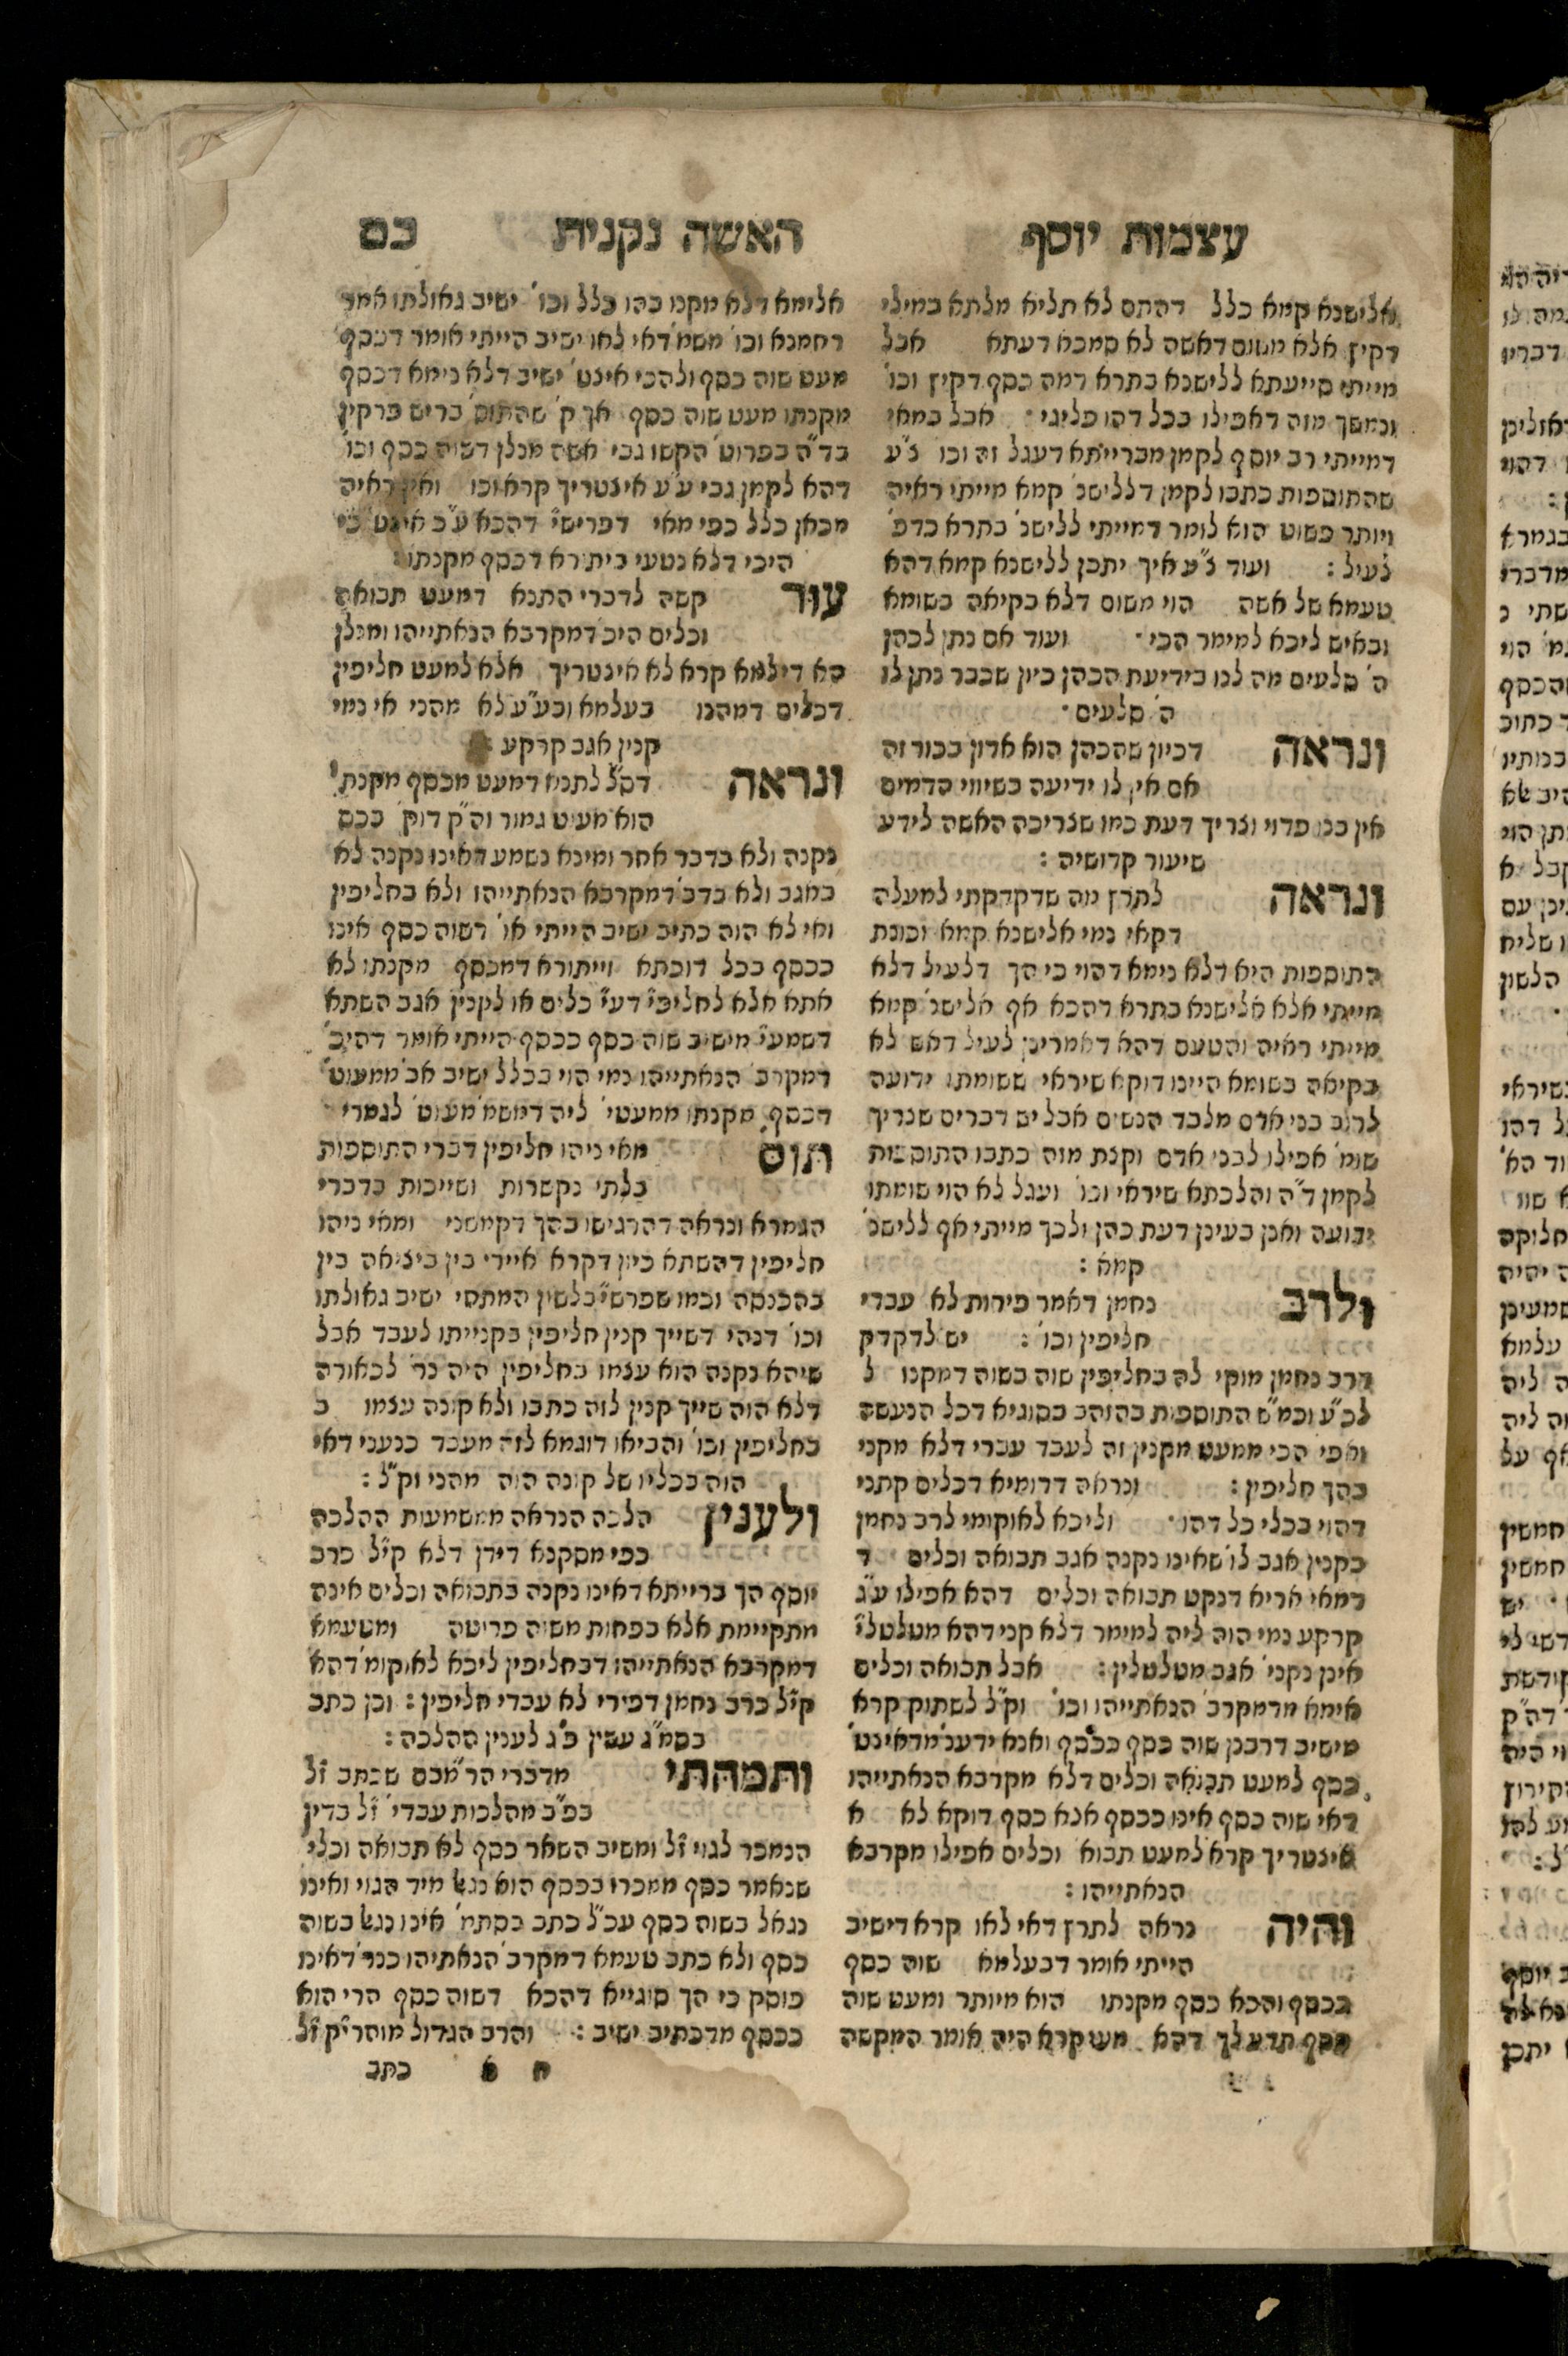 עצמות יוסף
האשה נקנית
כם
אלישנא קמא כלל דהתם לא תליא מלתא במילי
דקיץ אלא משום דאשה לא סמכא דעתא אבל
מייתי סייעתא ללישנא בתרא דמה כסף דקיץ וכו'
ונמשך מזה דאפילו בכל דהו פליגי אבל במאי
דמייתי רב יוסף לקמן מברייתא דעגל זה וכו' צ"ע
שהתוספות כתבו לקמן דללישנ' קמא מייתי ראיה
ויותר פשוט הוא לומר דמייתי ללישנ' בתרא כדפ'
לעיל : ועוד צ"ע איך יתכן ללישנא קמא דהא
טעמא של אשה הוי משום דלא בקיאה בשומא
ובאיש ליכא למימר הכי ועוד אם נתן לכהן
ה' סלעים מה לנו בידיעת הכהן כיון שכבר נתן לו
ה' סלעים
ונראה דכיון שהכהן הוא אדון בכור זה
אם אין לו ידיעה בשיווי הדמים
אין בנו פדוי וצריך דעת כמו שצריכה האשה לידע
שיעור קדושיה :
ונראה לתרץ מה שדקדקתי למעלה
דקאי נמי אלישנא קמא וכונת
התוספות היא דלא נימא דהוי כי הך דלעיל דלא
מייתי אלא אלישנא בתרא דהכא אף אלישנ' קמא
מייתי ראיה והטעם דהא דאמרינן לעיל דאש' לא
בקיאה בשומא היינו דוקא שיראי ששומתו ידועה
לרוב בני אדם מלבד הנשים אבל יש דברים שצריך
שומ' אפילו לבני אדם וקצת מזה כתבו התוספות
לקמן ד"ה והלכתא שיראי וכו' ועגל לא הוי שומתו
ידועה ואכן בעינן דעת כהן ולכך מייתי אף ללישנ'
קמא :
ולרב נחמן דאמר פירות לא עבדי
חליפין וכו' : יש לדקדק
דרב נחמן מוקי לה בחליפין שוה בשוה דמקנו ל
לכ"ע וכמ"ש התוספות בהזהב בסוגיא דכל הנעשה
ואפי' הכי ממעט מקנין זה לעבד עברי דלא מקני
בהך חליפין : ונראה דדומיא דכלים קתני
דהוי בכלי כל דהו וליכא לאוקומי לרב נחמן
בקנין אגב לו' שאינו נקנה אגב תבואה וכלים ד
דמאי אריא דנקט תבואה וכלים דהא אפילו ע"ג
קרקע נמי הוה ליה למימר דלא קני דהא מטלטלי'
אינן נקני' אגב מטלטלין : אבל תבואה וכלים
אימא מדמקרב' הנאתייהו וכו' וק"ל לשתוק קרא
מישיב דרבנן שוה כסף ככסף ואנא ידענ' מדאינט'
כסף למעט תבואה וכלים דלא מקרבא הנאתייהו
דאי שוה כסף אינו ככסף אנא כסף דוקא לא א
אינטריך קרא למעט תבוא' וכלים אפילו מקרבא
הנאתייהו :
והיה נראה לתרץ דאי לאו קרא דישיב
הייתי אומר דבעלמא שוה כסף
ככסף והכא כסף מקנתו הוא מיותר ומעט שוה
כסף תדע לך דהא מעיקרא היה אומר המקשה
אלימא דלא מקנו בהו כלל וכו' ישיב גאולתו אמר
רחמנא וכו' משמ' דאי לאו ישיב הייתי אומר דכסף
מעט שוה כסף ולהכי אינט' ישיב דלא נימא דכסף
מקנתו מעט שוה כסף אך ק' שהתוס' בריש פרקין
בד"ה בפרוט' הקשו גבי אשה מנלן דשוה ככסף וכו'
דהא לקמן גבי ע"ע אינטריך קרא וכו' ואין ראיה
מכאן כלל כפי מאי דפרישי' דהכא ע"כ אינט' כי
היכי דלא נטעי ביתירא דכסף מקנתו :
עוד קשה לדברי התנא דמעט תבואה
וכלים היכ' דמקרבא הנאתייהו ומנלן
הא דילמא קרא לא אינטריך אלא למעט חליפין
דכלים דמהנו בעלמא ובע"ע לא מהכי אי נמי
קנין אגב קרקע :
ונראה דס"ל לתנא דמעט מכסף מקנת'
הוא מעיט גמור וה"ק דוק' בכס'
נקנה ולא בדבר אחר ומינא נשמע דאינו נקנה לא
באגב ולא בדב' דמקרבא הנאתייהו ולא בחליפין
ואי לא הוה כתיב ישיב הייתי או' דשוה כסף אינו
ככסף בכל דוכתא וייתורא דמכסף מקנתו לא
אתא אלא לחליפי' דע"י כלים או לקנין אגב השתא
דשמעי' מישיב שוה כסף ככסף הייתי אומר דהיכ'
דמקרב' הנאתייהו נמי הוי בכלל ישיב אכ' ממעוט'
דכסף מקנתו ממעטי' ליה דמשמ' מעוט' לגמרי
תוס' מאי ניהו חליפין דברי התוספות
בלתי נקשרות ושייכות בדברי
הגמרא ונראה דהרגישו בהך דקמשני ומאי ניהו
חליפין דהשתא כיון דקרא איירי בין ביציאה בין
בהכנסה וכמו שפרש"י בלשון המתחי' ישיב גאולתו
וכו' דנהי דשייך קנין חליפין בקנייתו לעבד אבל
שיהא נקנה הוא עצמו בחליפין היה נר' לכאורה
דלא הוה שייך קנין לזה כתבו ולא קונה עצמו ב
בחליפין וכו' והביאו דוגמא לזה מעבד כנעני דאי
הוה בכליו של קונה הוה מהני וק"ל :
ולענין הלכה הנראה ממשמעות ההלכה
כפי מסקנא דידן דלא קי"ל כרב
יוסף הך ברייתא דאינו נקנה בתבואה וכלים אינה
מתקיימת אלא בפחות משוה פריטה ומטעמא
דמקרבא הנאתייהו דבחליפין ליכא לאוקומ' דהא
קי"ל כרב נחמן דפירי לא עבדי חליפין : וכן כתב
בסמ"ג עשין פ"ג לענין ההלכה :
ותמהתי מדברי הר"מבם שכתב ז"ל
בפ"ב מהלכות עבדי' ז"ל בדין
הנמכר לגוי ז"ל ומשיב השאר כסף לא תבואה וכלי'
שנאמר כסף ממכרו בכסף הוא נגאל מיד הגוי ואינו
נגאל בשוה כסף עכ"ל כתב בסתמ' אינו נגאל בשוה
כסף ולא כתב טעמא דמקרב' הנאתיהו כנר' דאינו
פוסק כי הך סוגייא דהכא דשוה כסף הרי הוא
ככסף מדכתיב ישיב : והרב הגדול מוהרי"ק ז"ל
כתב